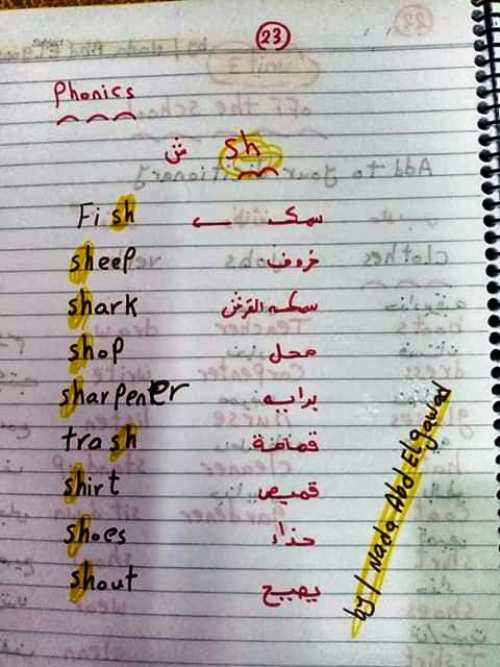 23
Phonics
ش sh
Fish سمك
sheep خروف
shark سمكه القرش
shop محل
sharpenter برايه
trash قمامة
shirt قميص
shoes حذاء
shout يصيح
by / Nada Abd Elgawad